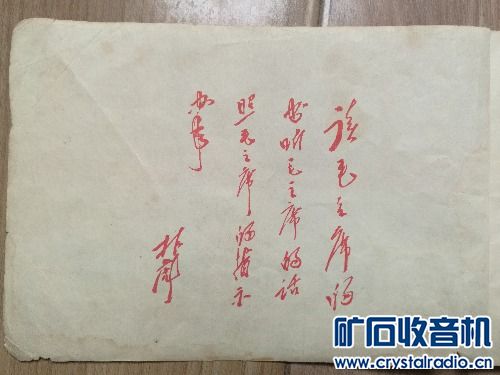 读毛主席的
书听毛主席的话
照毛主席的指示
办事
林彪
矿石收音机
www.crystalradio.cn